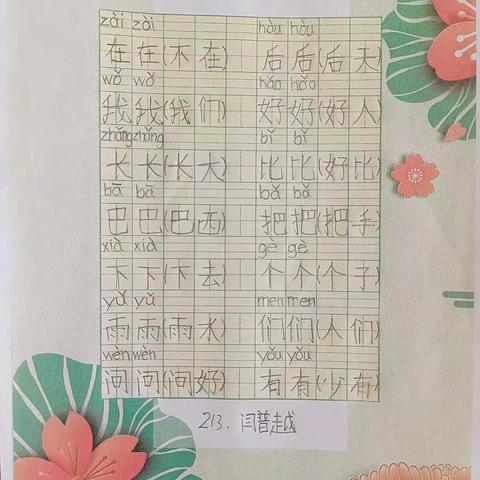 zài zài hòu hòu
在在(不在) 后后(后天)
wǒ wǒ hǎo hǎo
我我(我们) 好好(好人)
zhǎng zhǎng bǐ bǐ
长长(长大) 比比(好比)
bā bā bǎ bǎ
巴巴(巴西) 把把(把手)
xià xià gè gè
下下(下去) 个个(个子)
yǔ yǔ men men
雨雨(雨水) 们们(人们)
wèn wèn yǒu yǒu
问问(问好) 有有(少有)
213、闫普越